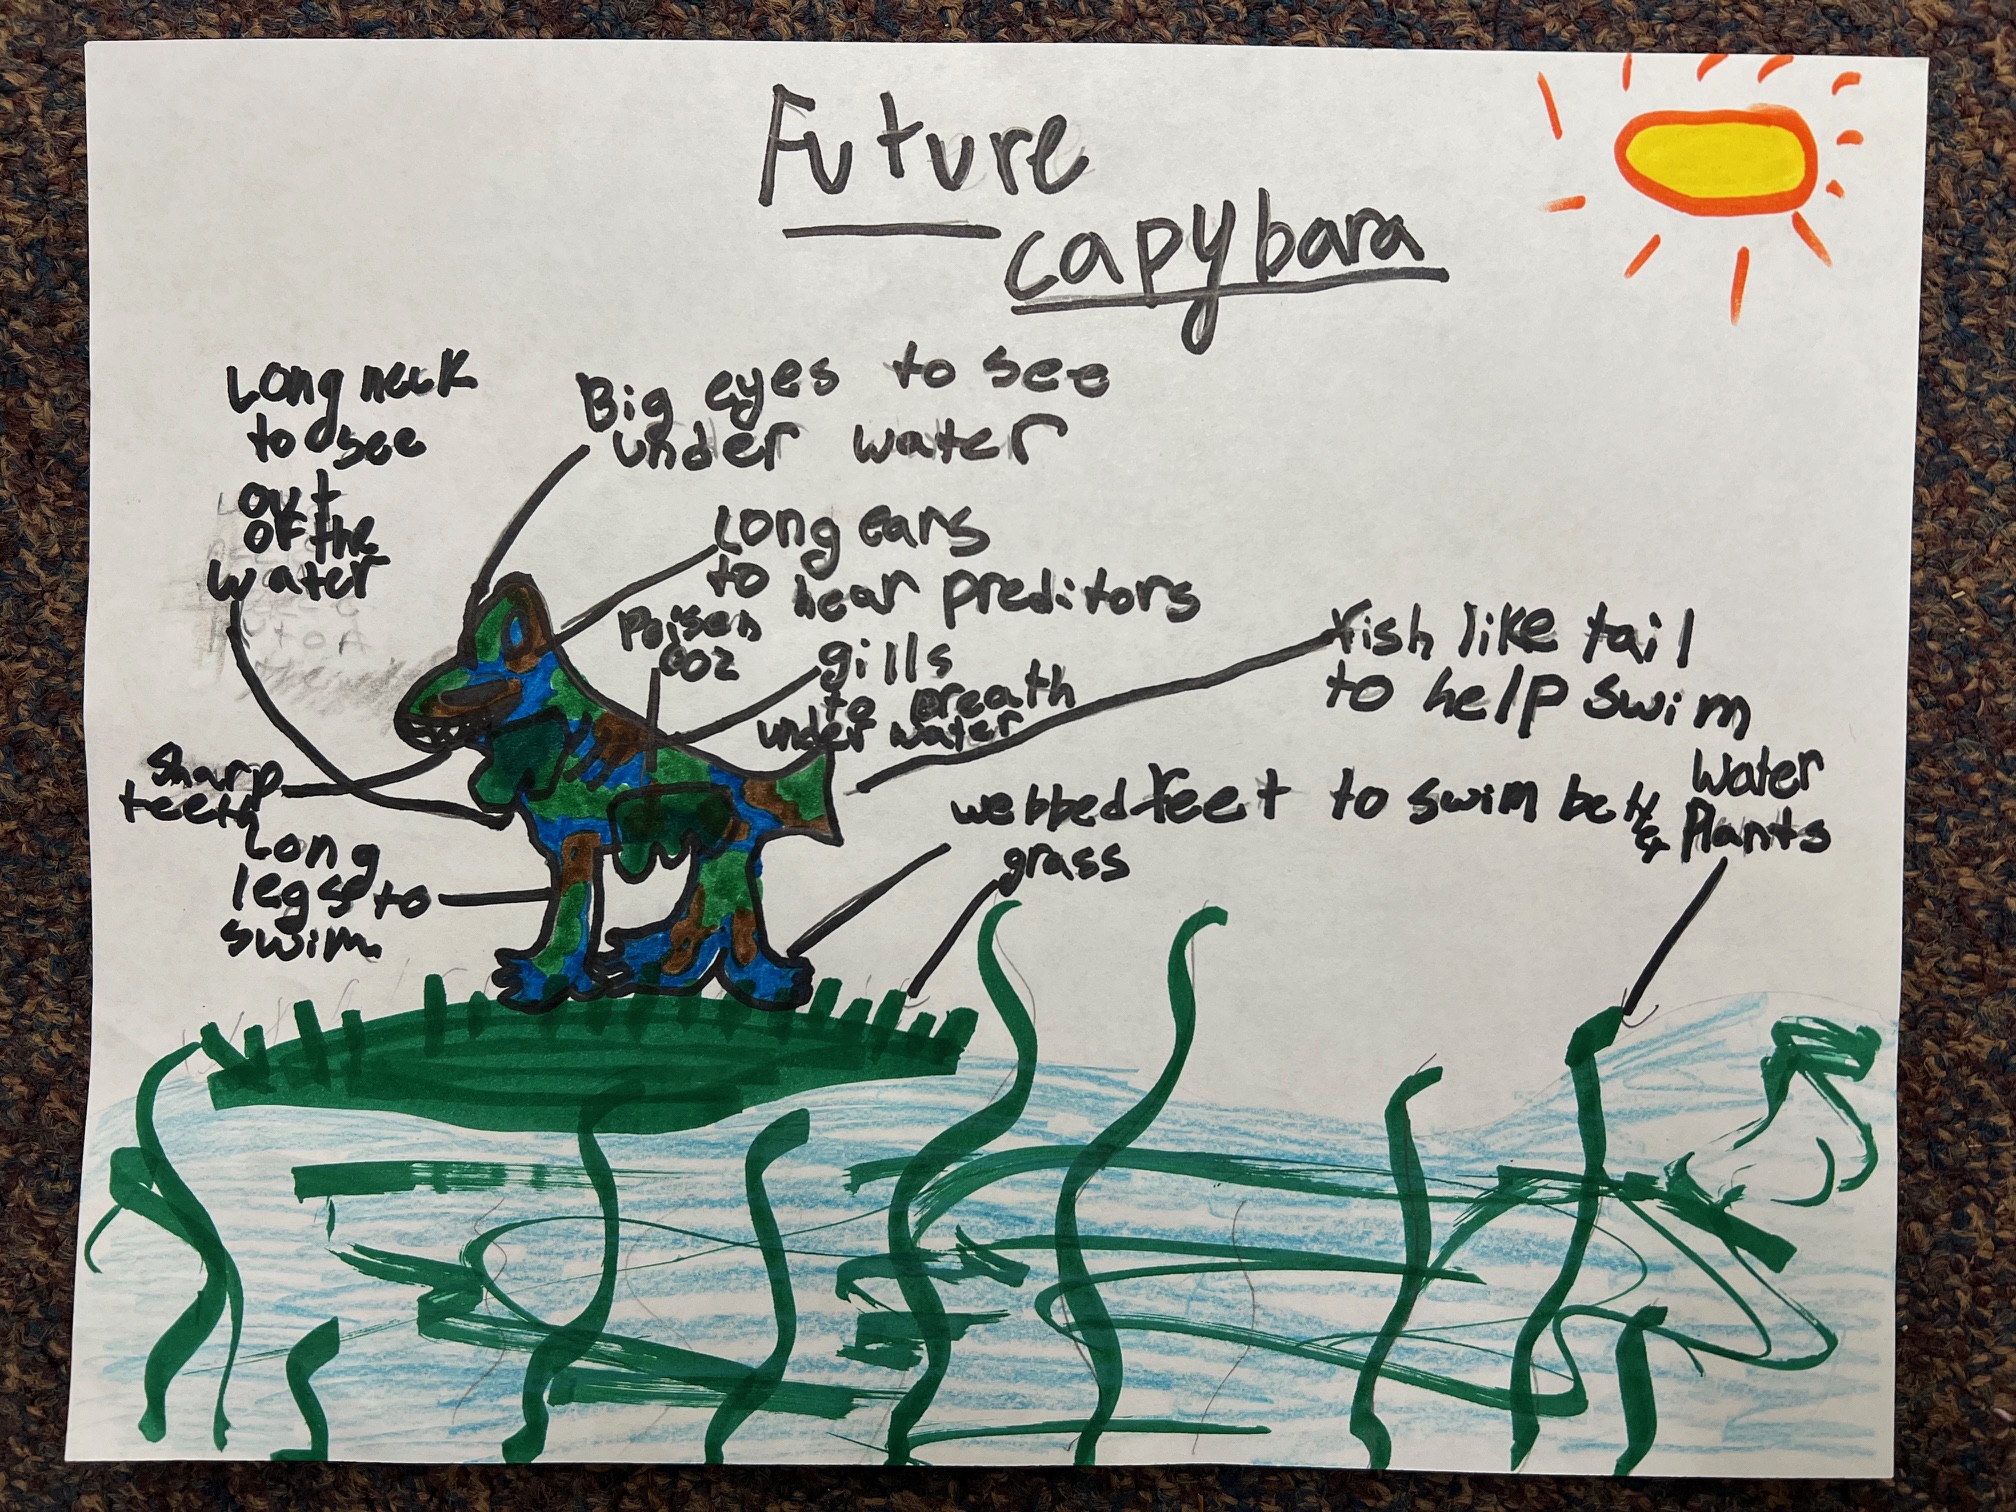 Future
capybara
Long neck
to see
out
of the
water
Big eyes to see
under water
Long ears
to hear preditors
Poisen
goz
gills
to Breath
under water
Fish like tail
to help swim
Sharp
teeth
Long
legs to
swim
webbed feet to swim
grass
Water
Plants